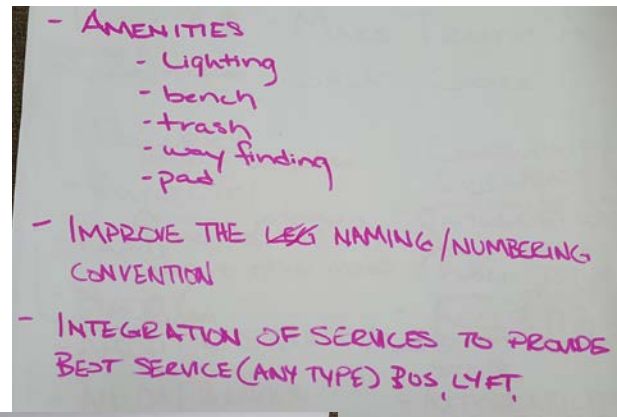 - AMENITIES
- Lighting
- bench
- trash
- way finding
- pad
- IMPROVE THE LEG NAMING/NUMBERING
CONVENTION
- INTEGRATION OF SERVICES TO PROVIDE
BEST SERVICE (ANY TYPE) BUS, LYFT,